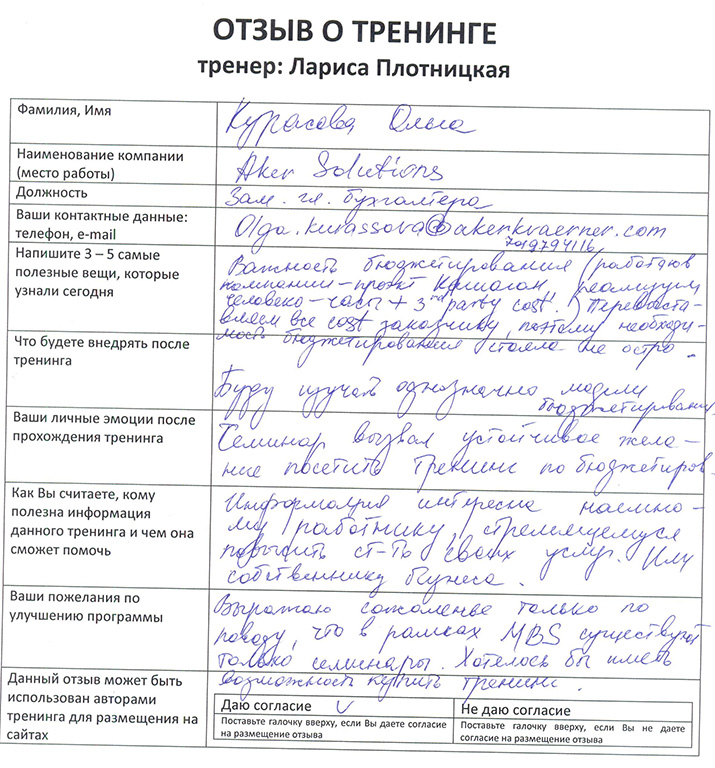 ОТЗЫВ О ТРЕНИНГЕ
тренер: Лариса Плотницкая
Фамилия, Имя
Курасова Ольга
Наименование компании
(место работы)
Aker Solutions
Должность
Зам. гл. бухгалтера
Ваши контактные данные:
телефон, e-mail
Olga.kurassova@akerkvaerner.com
7019794116
Напишите 3 – 5 самые
полезные вещи, которые
узнали сегодня
Важность бюджетирования (работдов
компании – проект Кашаган, реализуем
человеко-часы + 3rd party cost.) Перевыста-
вляем все cost заказчику, поэтому необходи-
мость бюджетирования стояла не остро.
Что будете внедрять после
тренинга
Буду изучать однозначно модели
бюджетирования.
Ваши личные эмоции после
прохождения тренинга
Семинар вызвал устойчивое жела-
ние посетить тренинг по бюджетиров.
Как Вы считаете, кому
полезна информация
данного тренинга и чем она
сможет помочь
Информация интересна наемно-
му работнику, стремящемуся
повысить ст-ть своих услуг. Или
собственнику бизнеса.
Ваши пожелания по
улучшению программы
Выражаю сожаленье только по
поводу, что в рамках MBS существуют
только семинары. Хотелось бы иметь
возможность купить тренинг.
Данный отзыв может быть
использован авторами
тренинга для размещения на
сайтах
Даю согласие V
Поставьте галочку вверху, если Вы даете согласие
на размещение отзыва
Не даю согласие
Поставьте галочку вверху, если Вы не даете
согласие на размещение отзыва